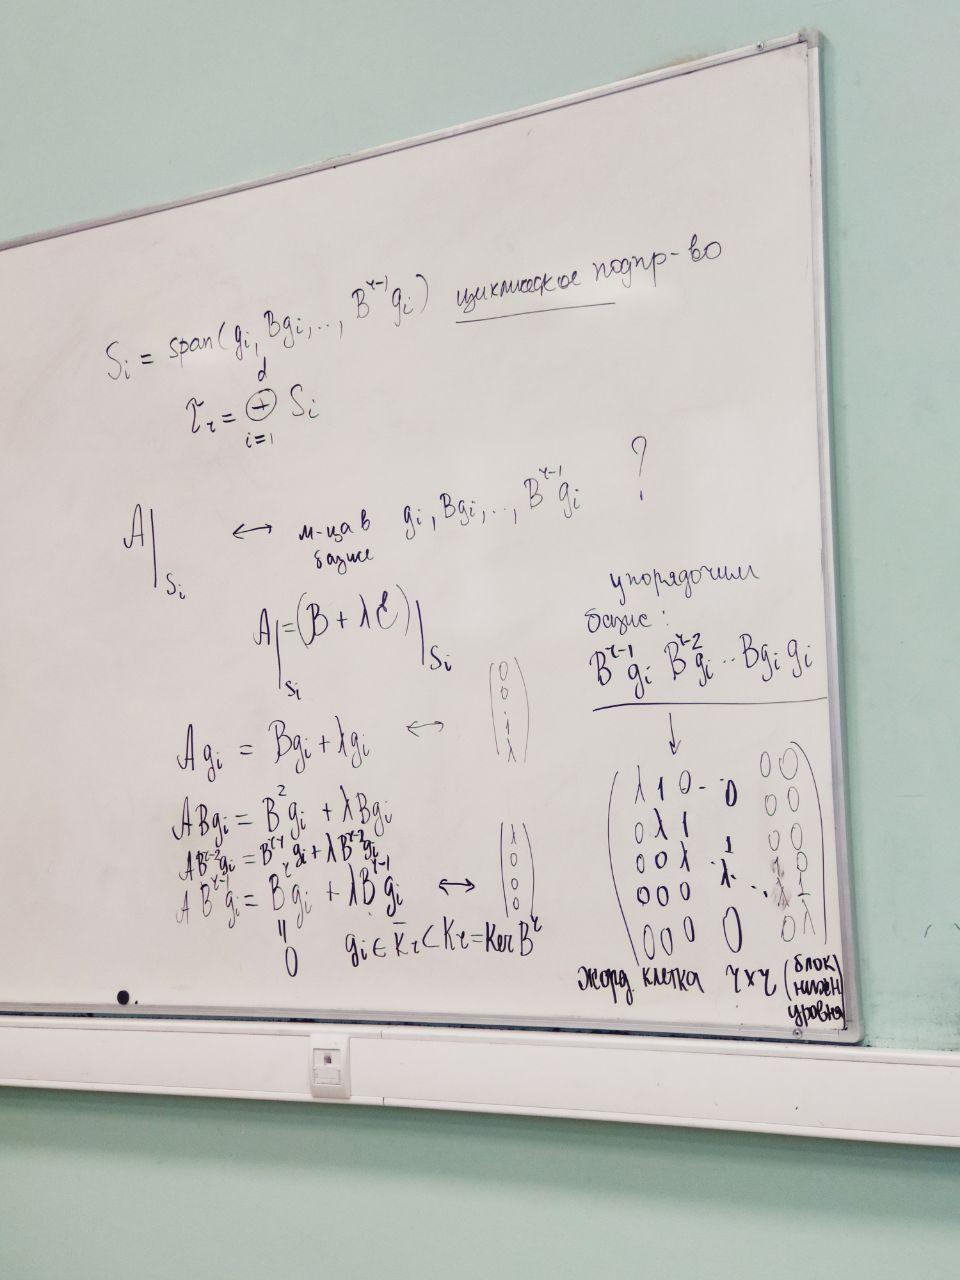 S_i = span(g_i, Bg_i, .., B^{r-1}g_i) циклическое подпр-во
d
τ_r = ⊕ S_i
i=1
A|_{S_i} ↔ м-ца в базисе g_i, Bg_i, .., B^{r-1}g_i ?
A|_{S_i} = (B + λE)|_{S_i}
Ag_i = Bg_i + λg_i ↔ (0 0 . 1 λ)
ABg_i = B^2g_i + λBg_i
AB^{r-2}g_i = B^{r-1}g_i + λB^{r-2}g_i
AB^{r-1}g_i = B^r g_i + λB^{r-1}g_i ↔ (λ 0 0 0 0)
||
0
g_i ∈ K̄_r ⊂ K_r = Ker B^r
упорядочим
базис:
B^{r-1}g_i B^{r-2}g_i .. Bg_i g_i
↓
λ 1 0 .. 0 0 0
0 λ 1 0 0
0 0 λ .. 1 0 0
0 0 0 λ .. 1 0
λ 1
0 0 0 0 0 λ
жорд. клетка r×r (блок
нижн
уровня)